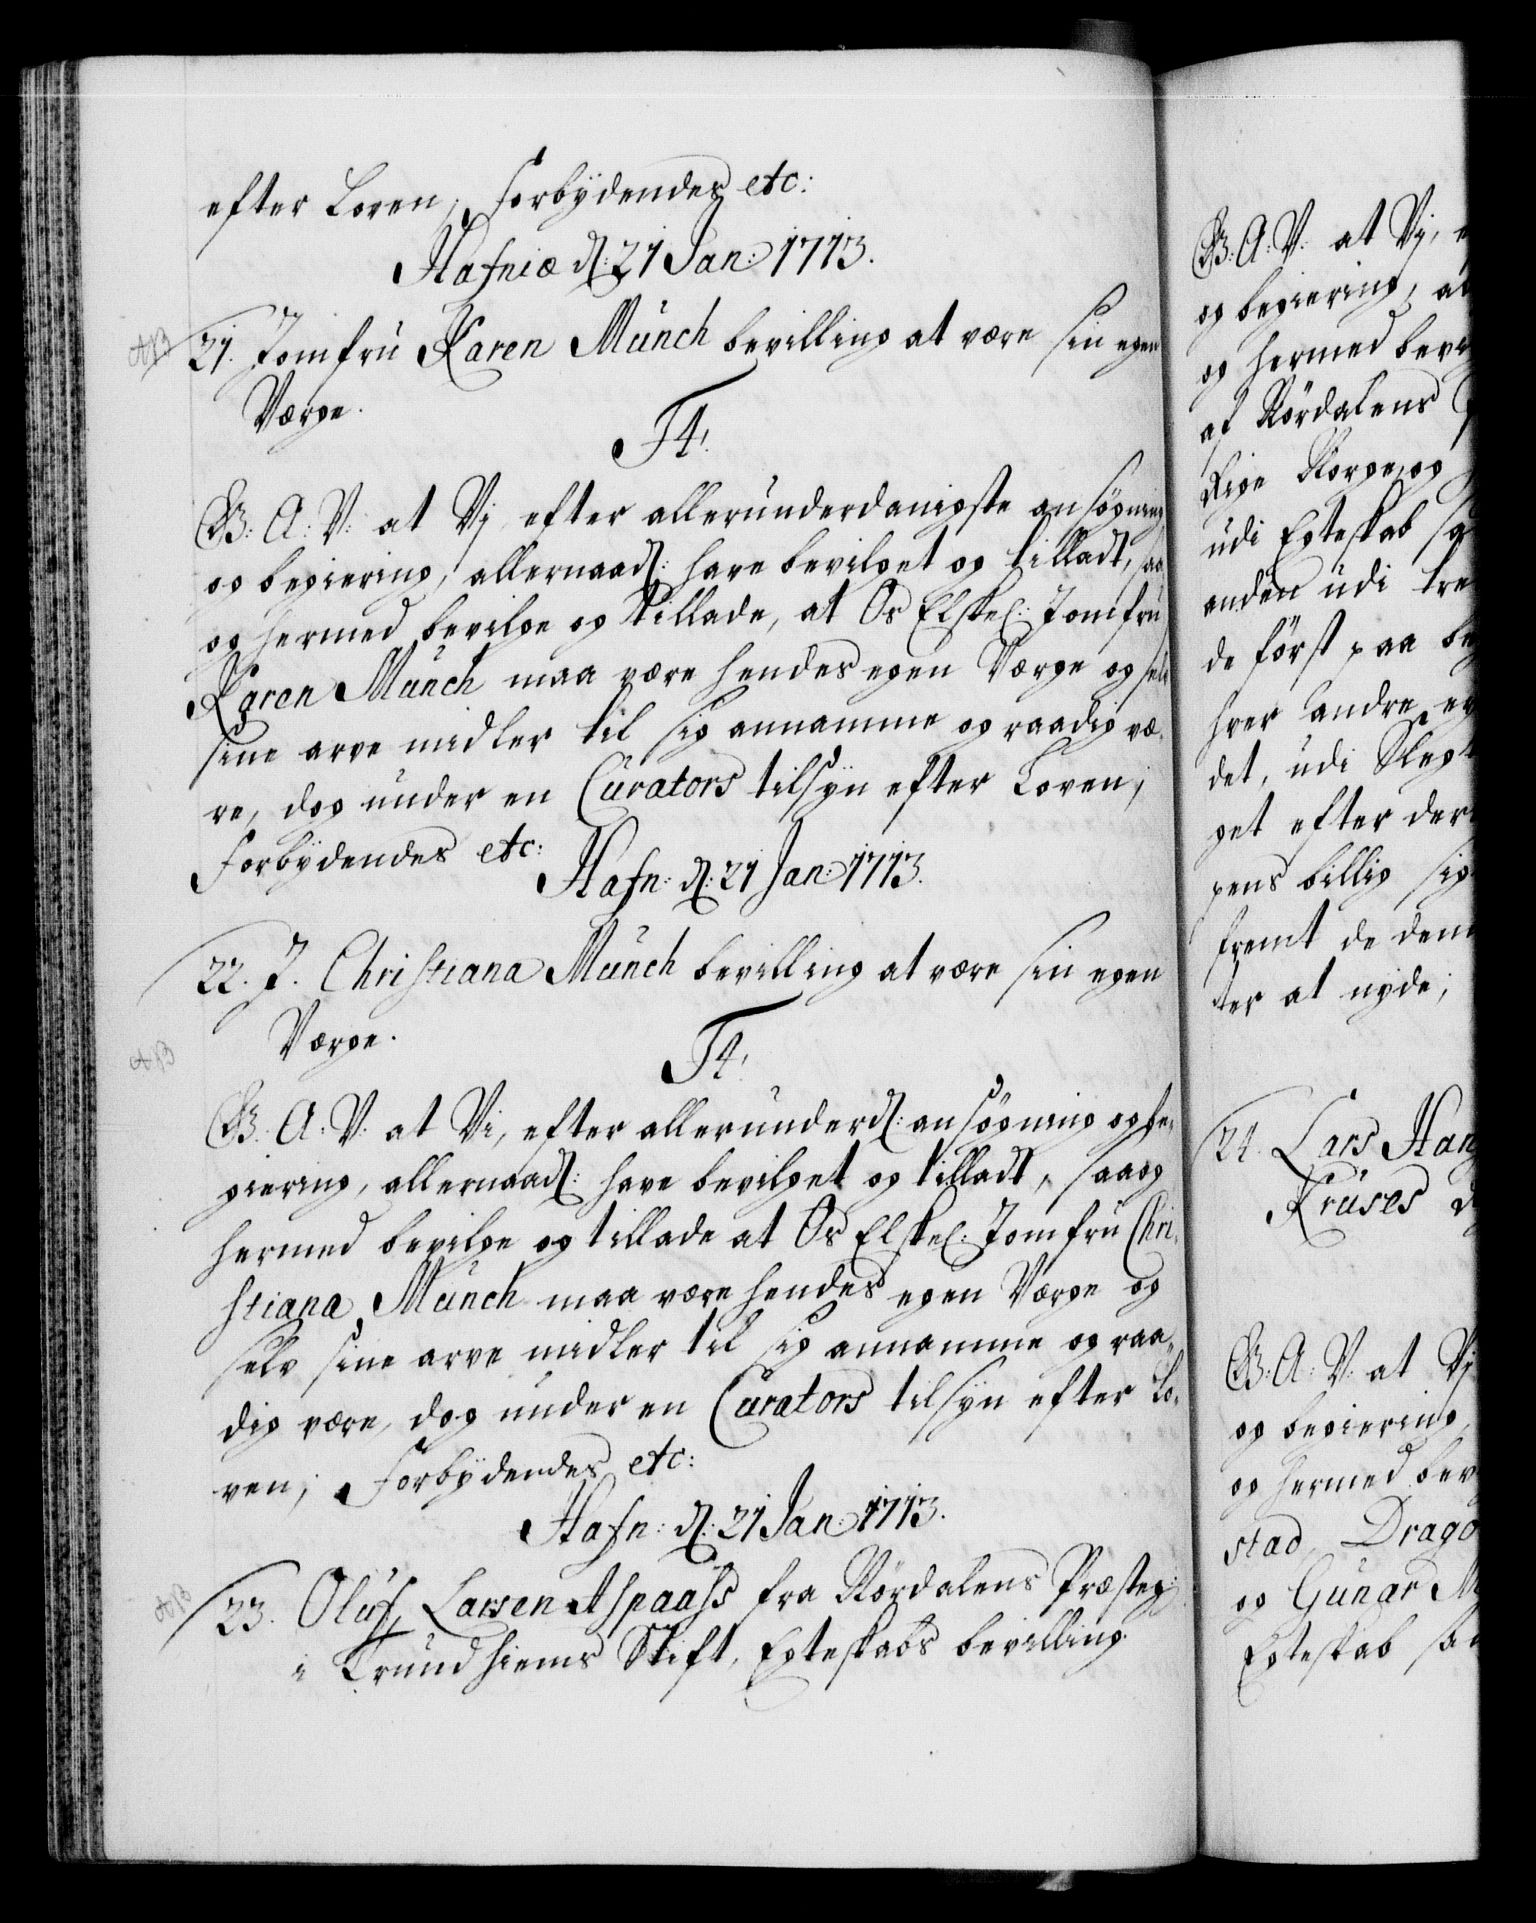 efter Loven, Forbydendes etc:
Hafniæ d: 21 Jan: 1713.
21. Jomfru Karen Munch bevilling at være sin egen
Værge.
F4.
G: A: V: at Vj efter allerunderdanigste ansøgning
og begiering, allernaad: have bevilget og tilladt, saa
og hermed bevilge og tillade, at Os Elskel: Jomfru
Karen Munch maa være hendes egen Værge og self
sine arve midler til sig annamme og raadig væ-
re, dog under en Curators tilsyn efter Loven,
Forbydendes etc:
Hafn: d: 21 Jan: 1713.
22. J. Christiana Munch bevilling at være sin egen
Værge.
F4.
G: A: V: at Vi, efter allerunderd: ansøgning og be-
giering, allernaad: have bevilget og tilladt, saa og
hermed bevilge og tillade at Os Elskel: Jomfru Chri-
stiana Munch maa være hendes egen Værge og
selv sine arve midler til sig annamme og raa-
dig være, dog under en Curators tilsyn efter Lo-
ven; Forbydendes etc:
Hafn: d: 21 Jan: 1713.
23. Oluf Larsen Aspaass fra Rørdalens Præsteg:
i Trundhiems Stift, Egteskabs bevilling.
G: A: V: at Vj,
og begiering,
og hermed
af Rørdalens
Rige Norge, og
udi Egteskab
anden udi
de først paa
hver andre
det, udi
get efter
gens billig
fremt de
ter at nyde;
24. Lars
Kruses
G: A: V: at Vj
og begiering,
og hermed
stad,
og Gunar
Egteskab